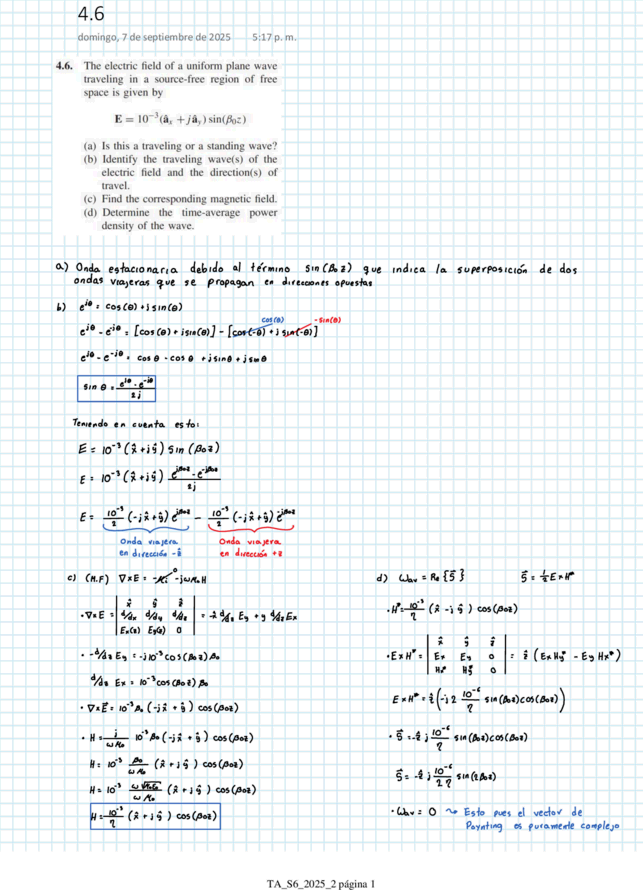 4.6
domingo, 7 de septiembre de 2025 5:17 p. m.
4.6. The electric field of a uniform plane wave
traveling in a source-free region of free
space is given by
E = 10⁻³(âₓ + jâᵧ) sin(β₀z)
(a) Is this a traveling or a standing wave?
(b) Identify the traveling wave(s) of the
electric field and the direction(s) of
travel.
(c) Find the corresponding magnetic field.
(d) Determine the time-average power
density of the wave.
a) Onda estacionaria debido al término sin(β₀z) que indica la superposición de dos
ondas viajeras que se propagan en direcciones opuestas
b) e^{jθ} = cos(θ) + j sin(θ)
cos(θ) -sin(θ)
e^{jθ} - e^{-jθ} = [cos(θ) + j sin(θ)] - [cos(-θ) + j sin(-θ)]
e^{jθ} - e^{-jθ} = cos θ - cos θ + j sin θ + j sin θ
sin θ = (e^{jθ} - e^{-jθ}) / 2j
Teniendo en cuenta esto:
E = 10⁻³ (x̂ + jŷ) sin(β₀z)
E = 10⁻³ (x̂ + jŷ) (e^{jβ₀z} - e^{-jβ₀z}) / 2j
E = 10⁻³/2 (-jx̂ + ŷ) e^{jβ₀z} - 10⁻³/2 (-jx̂ + ŷ) e^{-jβ₀z}
Onda viajera
en dirección -ẑ
Onda viajera
en dirección +z
c) (M.F) ∇×E = -M_i⁰ - jωμ₀H
· ∇×E = | x̂ ŷ ẑ |
| d/dx d/dy d/dz | = -x̂ d/dz Ey + y d/dz Ex
| Ex(z) Ey(z) 0 |
· -d/dz Ey = -j10⁻³ cos(β₀z) β₀
d/dz Ex = 10⁻³ cos(β₀z) β₀
· ∇×E⃗ = 10⁻³ β₀ (-jx̂ + ŷ) cos(β₀z)
· H = j/ωμ₀ 10⁻³ β₀ (-jx̂ + ŷ) cos(β₀z)
H = 10⁻³ β₀/ωμ₀ (x̂ + jŷ) cos(β₀z)
H = 10⁻³ ω√μ₀ε₀/ωμ₀ (x̂ + jŷ) cos(β₀z)
H = 10⁻³/η (x̂ + jŷ) cos(β₀z)
d) Wav = Re {S⃗} S⃗ = ½ E×H*
· H* = 10⁻³/η (x̂ - jŷ) cos(β₀z)
· E×H* = | x̂ ŷ ẑ |
| Ex Ey 0 | = ẑ (Ex Hy* - Ey Hx*)
| Hx* Hy* 0 |
E×H* = ẑ (-j2 10⁻⁶/η sin(β₀z) cos(β₀z))
· S⃗ = -ẑ j 10⁻⁶/η sin(β₀z) cos(β₀z)
S⃗ = -ẑ j 10⁻⁶/2η sin(2β₀z)
· Wav = 0 ↝ Esto pues el vector de
Poynting es puramente complejo
TA_S6_2025_2 página 1